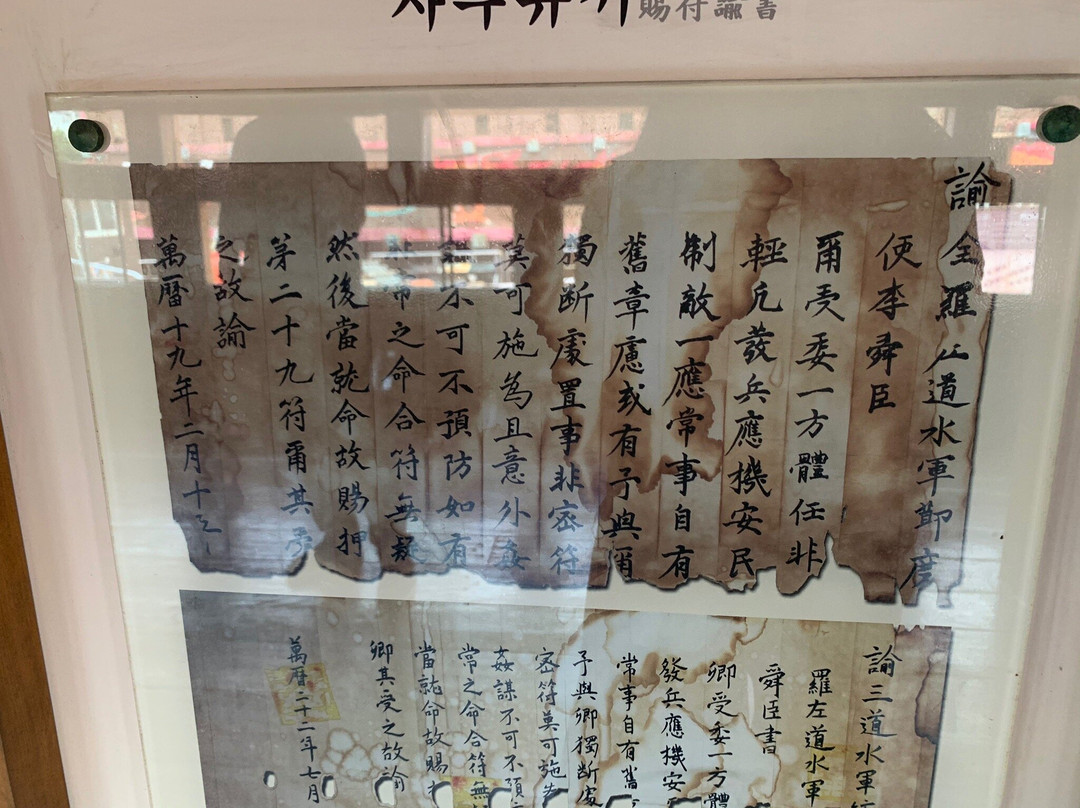 사부유서 賜符諭書
諭全羅左道水軍節度
使李舜臣
爾受委一方體任非
輕凡發兵應機安民
制敵一應常事自有
舊章慮或有予與爾
獨斷處置事非密符
莫可施爲且意外姦
謀不可不預防如有
非常之命合符無疑
然後當就命故賜押
第二十九符爾其受
之故諭
萬曆十九年二月十
諭三道水軍
羅左道水軍
舜臣書
卿受委一方體
發兵應機安
常事自有舊
予與卿獨斷處
密符莫可施
姦謀不可不預
常之命合符無
當就命故賜
卿其受之故諭
萬曆二十二年七月